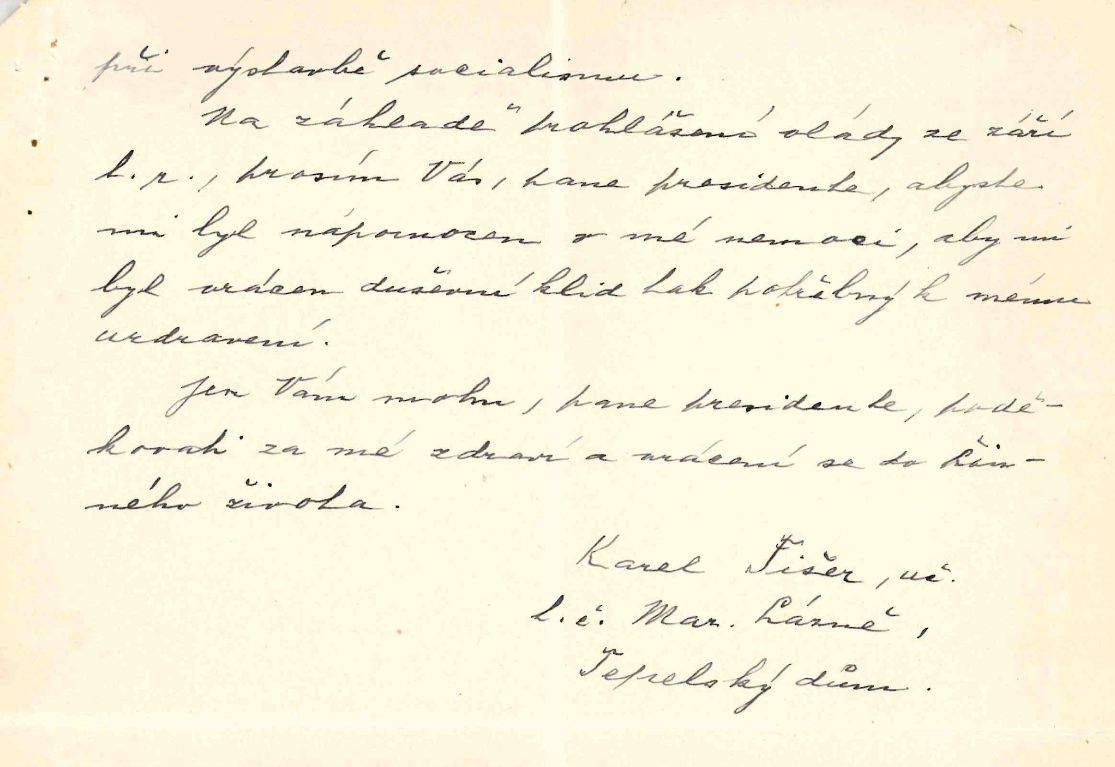 při výstavbě socialismu.
Na základě prohlášení vlády ze září
t. r., prosím Vás, pane presidente, abyste
mi byl nápomocen v mé nemoci, aby mi
byl vrácen duševní klid tak potřebný k mému
uzdravení.
Jen Vám mohu, pane presidente, podě-
kovati za mé zdraví a vrácení se do čin-
ného života.
Karel Fišer, uč.
t. č. Mar. Lázně,
Tepelský dům.